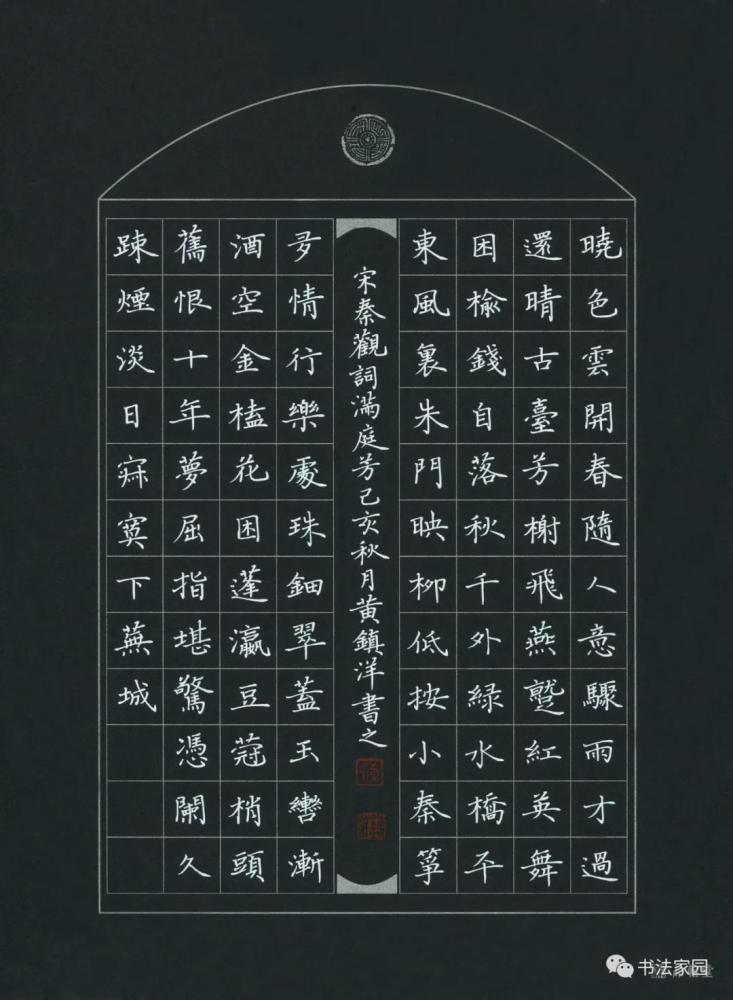 曉色雲開春隨人意驟雨才過
還晴古臺芳榭飛燕蹵紅英舞
困榆錢自落秋千外綠水橋平
東風裏朱門映柳低按小秦箏
宋秦觀詞滿庭芳己亥秋月黃鎮洋書之
多情行樂處珠鈿翠蓋玉轡漸
酒空金榼花困蓬瀛豆蔻梢頭
舊恨十年夢屈指堪驚憑闌久
疎煙淡日寂寞下蕪城
书法家园